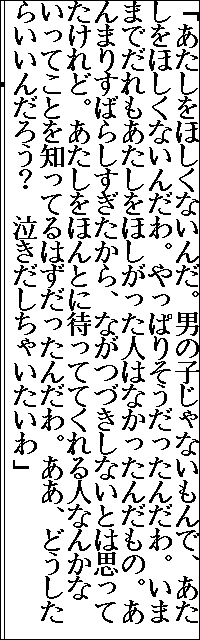 「あたしをほしくないんだ。男の子じゃないもんで、あた
しをほしくないんだわ。やっぱりそうだったんだわ。いま
までだれもあたしをほしがった人はなかったんだもの。あ
んまりすばらしすぎたから、ながつづきしないとは思って
たけれど。あたしをほんとに待っててくれる人なんかな
いってことを知ってるはずだったんだわ。ああ、どうした
らいいんだろう？　泣きだしちゃいたいわ」